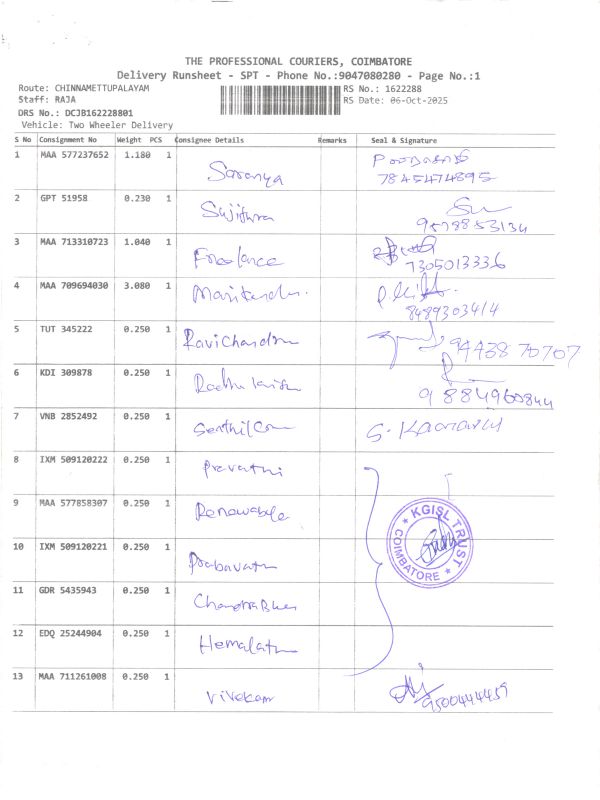 THE PROFESSIONAL COURIERS, COIMBATORE
Delivery Runsheet - SPT - Phone No.:9047080280 - Page No.:1
Route: CHINNAMETTUPALAYAM
RS No.: 1622288
Staff: RAJA
RS Date: 06-Oct-2025
DRS No.: DCJB162228801
Vehicle: Two Wheeler Delivery
S No Consignment No Weight PCS Consignee Details Remarks Seal & Signature
1 MAA 577237652 1.180 1 Saranya
7845474895
2 GPT 51958 0.230 1 Sujithra
9578853134
3 MAA 713310723 1.040 1 Freelance
7305013336
4 MAA 709694030 3.080 1
8489303414
5 TUT 345222 0.250 1 Ravichandran
94438 70707
6 KDI 309878 0.250 1
9884960844
7 VNB 2852492 0.250 1
8 IXM 509120222 0.250 1 Pravathi
9 MAA 577858307 0.250 1 Renewable
10 IXM 509120221 0.250 1 Prabavathi
KGISL TRUST
COIMBATORE
11 GDR 5435943 0.250 1
12 EDQ 25244904 0.250 1 Hemalatha
13 MAA 711261008 0.250 1 Vivekam
9500444459